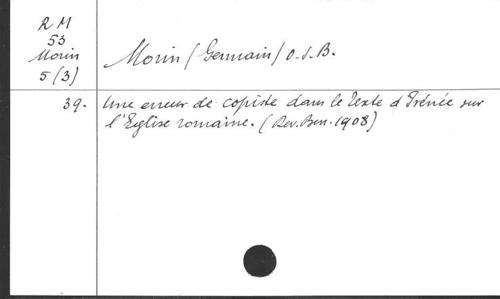 R M
53
Morin
5 (3)
Morin (Germain) O.S.B.
39. Une erreur de copiste dans le texte d'Irénée sur
l'Eglise romaine. (Rev. Ben. 1908)